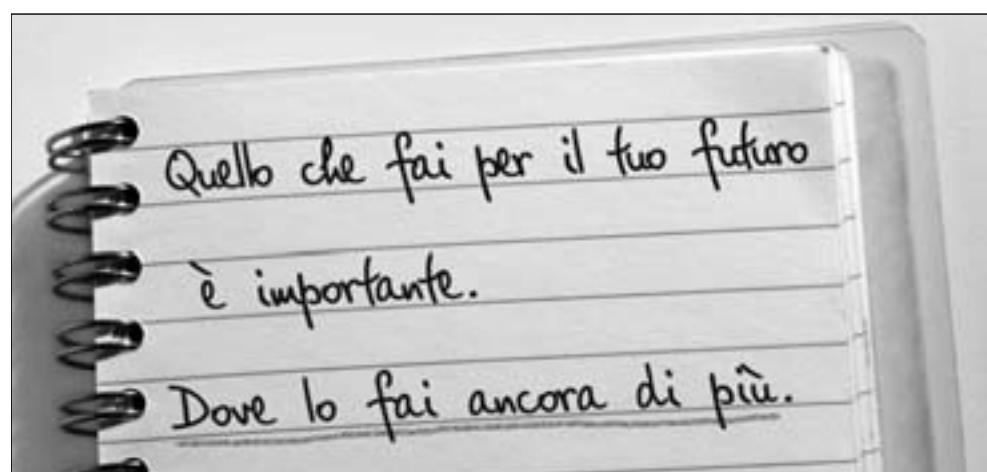 Quello che fai per il tuo futuro
è importante.
Dove lo fai ancora di più.